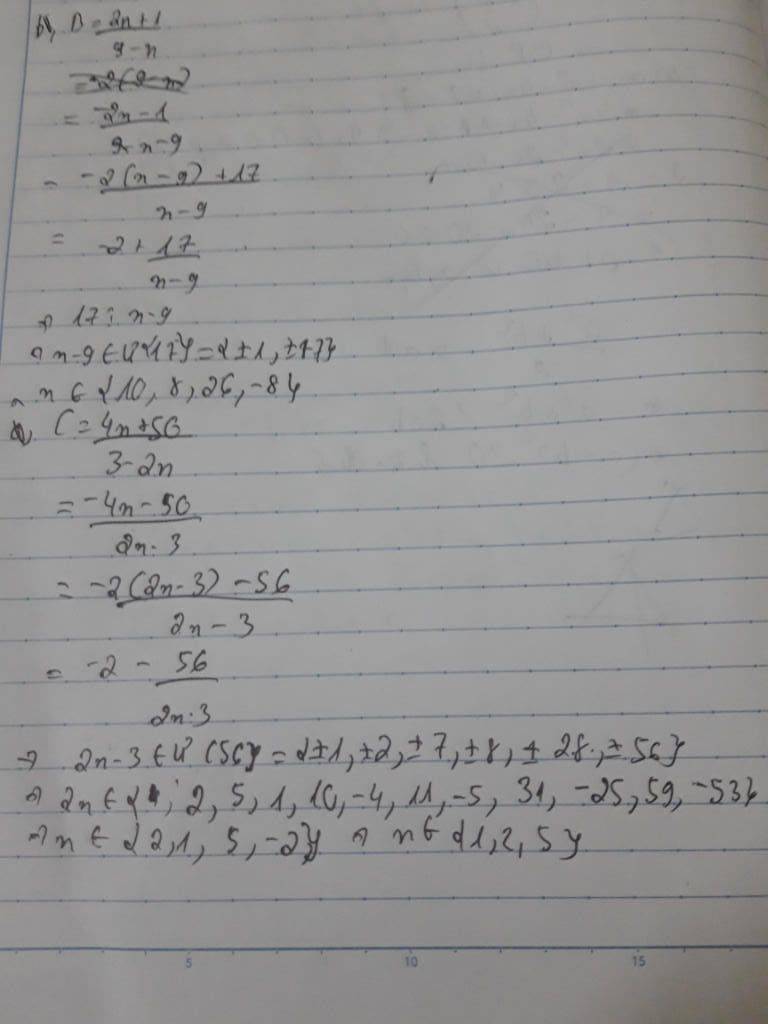 b, B = 2n+1
9-n
= -2(9-n)
= -2n-1
n-9
= -2(n-9)+17
n-9
= -2 + 17
n-9
⇒ 17 ⋮ n-9
⇒ n-9 ∈ Ư{17} = {±1, ±17}
⇒ n ∈ {10, 8, 26, -8}
C = 4n+50
3-2n
= -4n-50
2n-3
= -2(2n-3) -56
2n-3
= -2 - 56
2n-3
⇒ 2n-3 ∈ Ư(56) = {±1, ±2, ±7, ±8, ±28, ±56}
⇒ 2n ∈ {4; 2, 5, 1, 10, -4, 11, -5, 31, -25, 59, -53}
⇒ n ∈ {2, 1, 5, -2} ⇒ n ∈ {1, 2, 5}
5 10 15